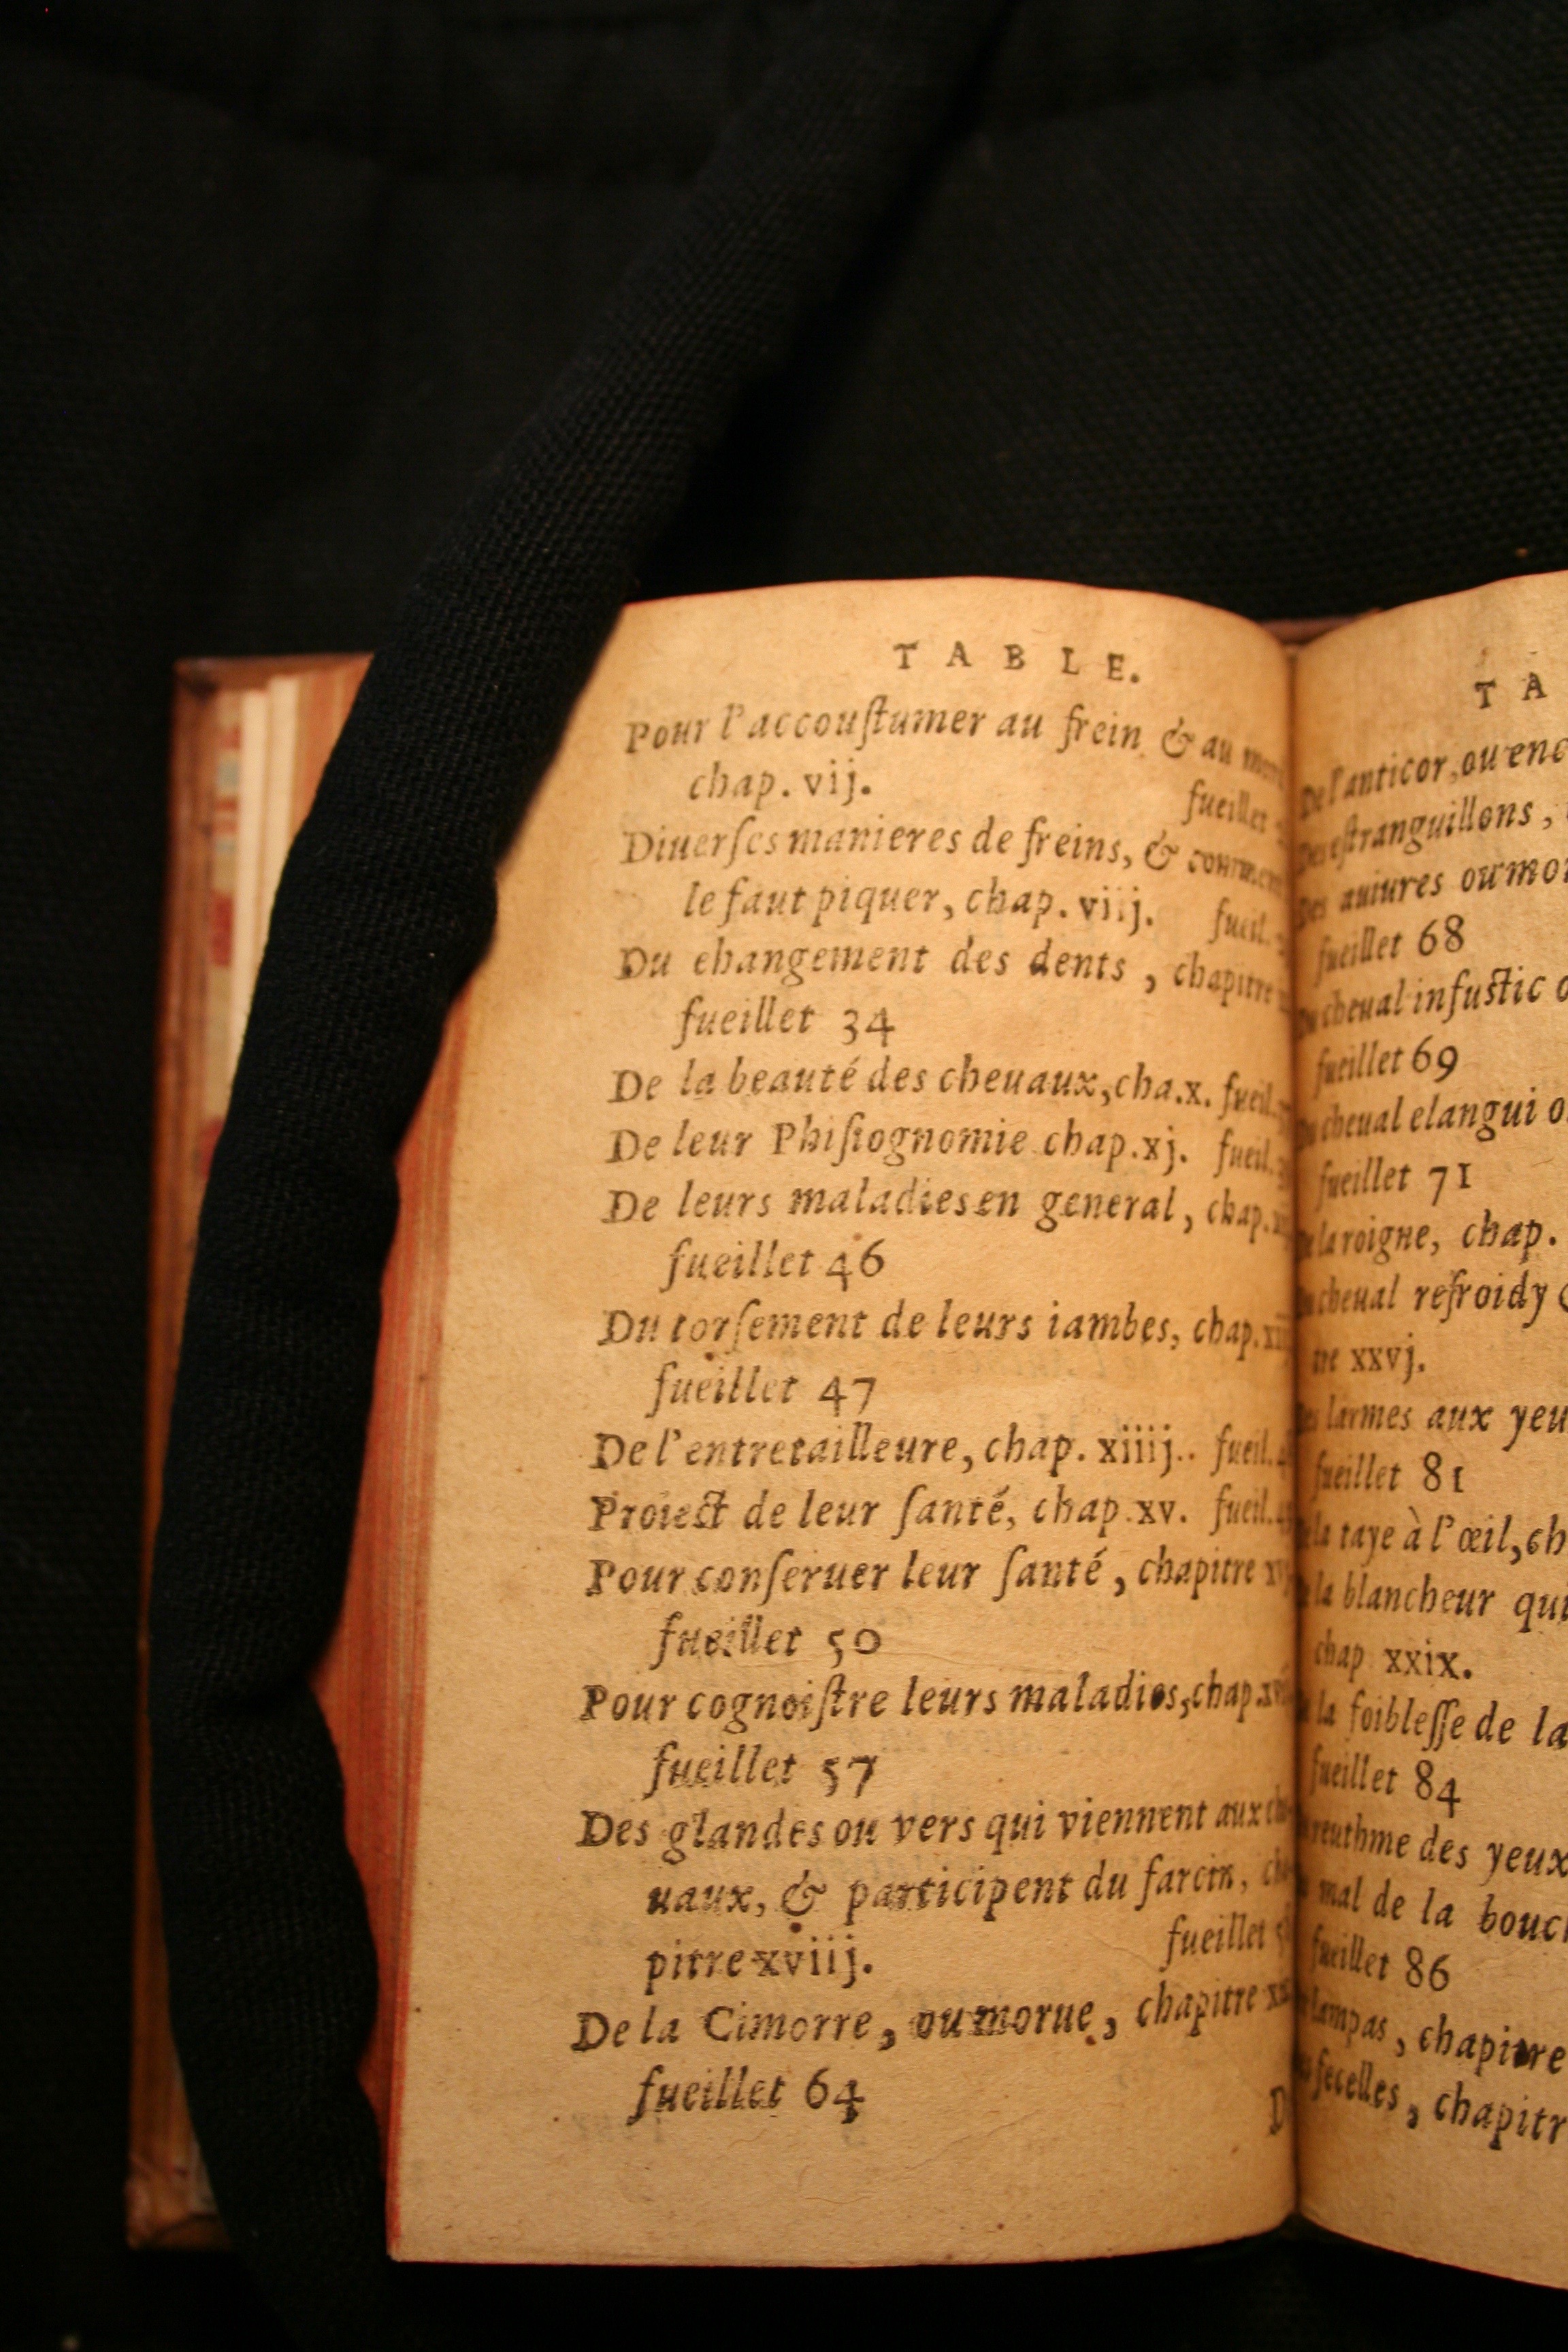 TABLE.
Pour l'accouſtumer au frein & au
chap. vij. fueillet
Diuerſes manieres de freins, &
le faut piquer, chap. viij. fueil.
Du changement des dents, chapitre
fueillet 34
De la beauté des cheuaux, cha.x. fueil.
De leur Phiſiognomie chap.xj. fueil.
De leurs maladies en general, chap.
fueillet 46
Du torſement de leurs iambes, chap.
fueillet 47
De l'entretailleure, chap. xiiij.. fueil.
Proiect de leur ſanté, chap.xv. fueil.
Pour conſeruer leur ſanté, chapitre
fueillet 50
Pour cognoiſtre leurs maladies, chap.
fueillet 57
Des glandes ou vers qui viennent aux
uaux, & participent du farcin,
pitre xviij. fueillet
De la Cimorre, ou morue, chapitre
fueillet 64
TA
De l'anticor, ou enc
eſtranguillons,
auiures ou mor
fueillet 68
cheual infuſtic o
fueillet 69
cheual elangui o
fueillet 71
la roigne, chap.
cheual refroidy &
tre xxvj.
larmes aux yeu
fueillet 81
la taye à l'œil, ch
la blancheur qui
chap xxix.
la foibleſſe de la
fueillet 84
des yeux
mal de la bouc
fueillet 86
lampas, chapitre
chapitr